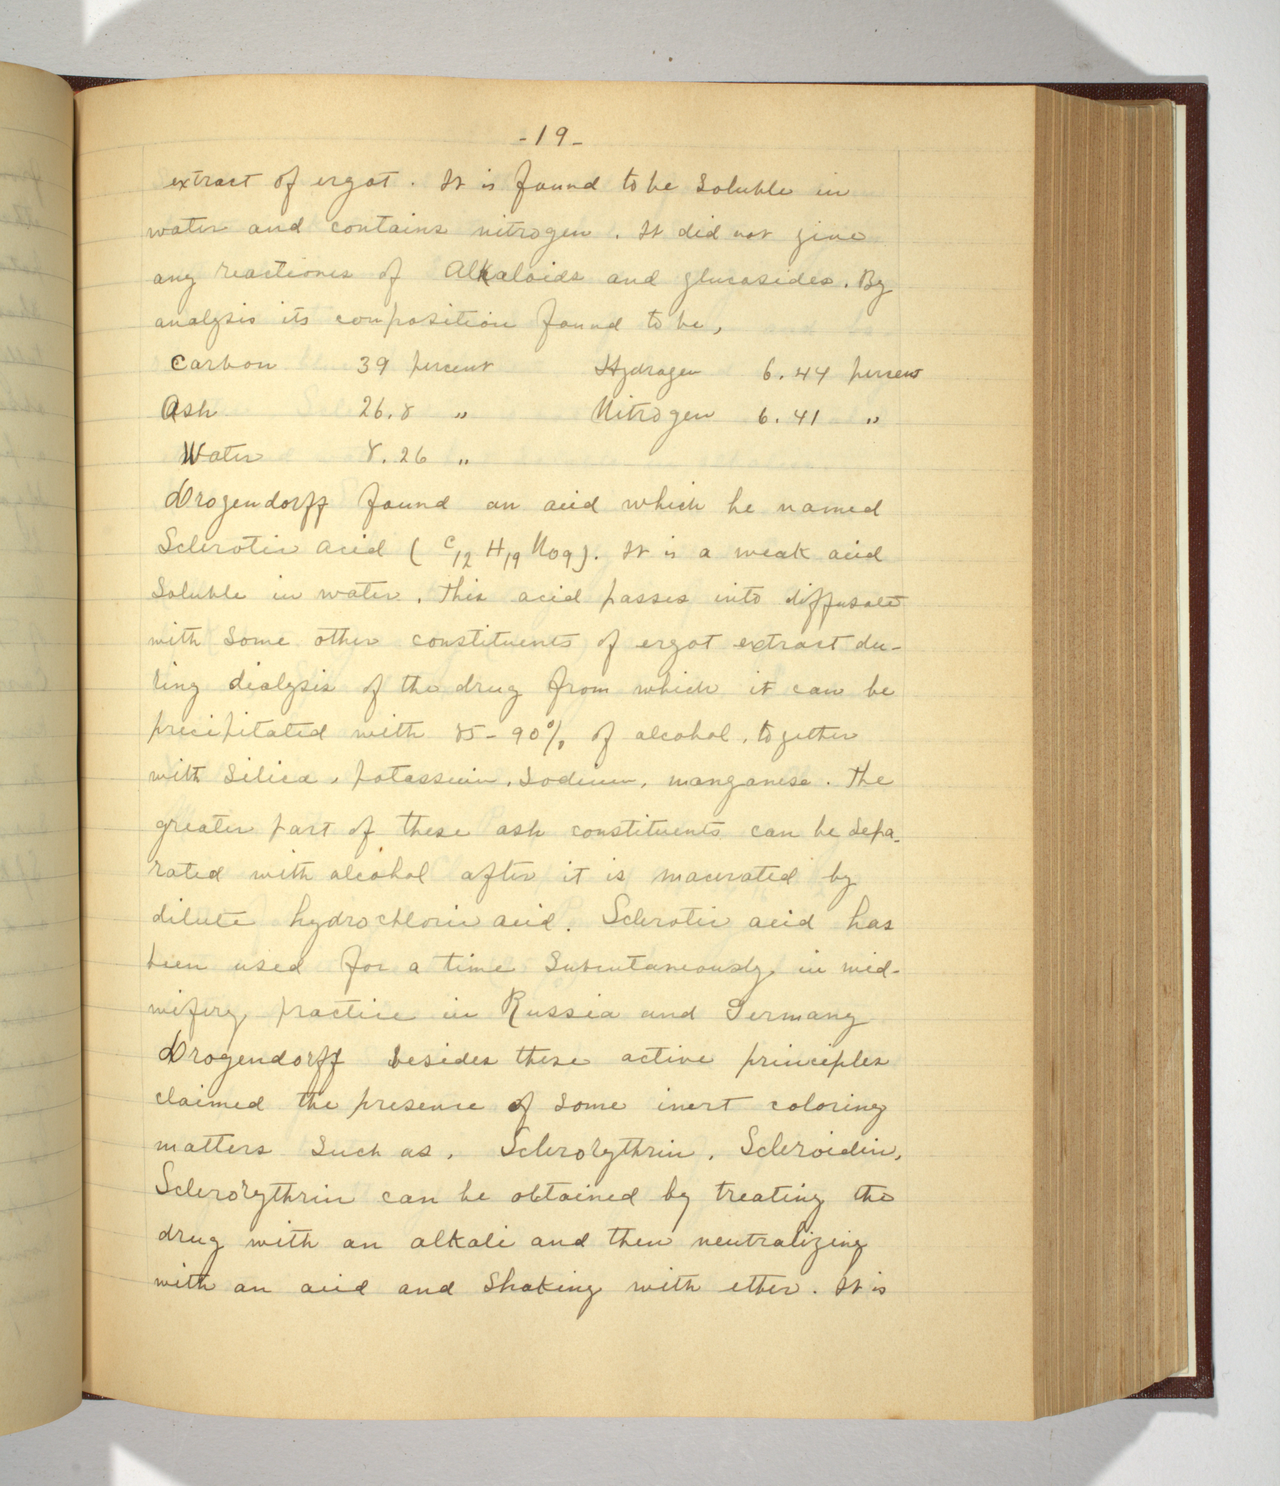 -19-
extract of ergot. It is found to be Soluble in
water and contains nitrogen. It did not give
any reactiones of Alkaloids and glucosides. By
analysis its composition found to be,
Carbon 39 percent Hydrogen 6.44 percent
Ash 26.8 " Nitrogen 6.41 "
Water 8.26 "
Drogendorff found an acid which he named
Sclerotic acid (C12 H19 NO9). It is a weak acid
Soluble in water. This acid passes into diffusate
with Some other constituents of ergot extract du-
ring dialysis of the drug from which it can be
precipitated with 85-90% of alcohol, together
with Silica, potassium, Sodium, manganese. The
greater part of these ash constituents can be Sepa-
rated with alcohol after it is macerated by
dilute hydrochloric acid. Sclerotic acid has
been used for a time Subcutaneously in mid-
wifery practice in Russia and Germany
Drogendorff besides these active principles
claimed the presence of Some inert coloring
matters Such as, Sclerorythrin, Scleroidin,
Sclerorythrin can be obtained by treating the
drug with an alkali and then neutralizing
with an acid and Shaking with ether. It is